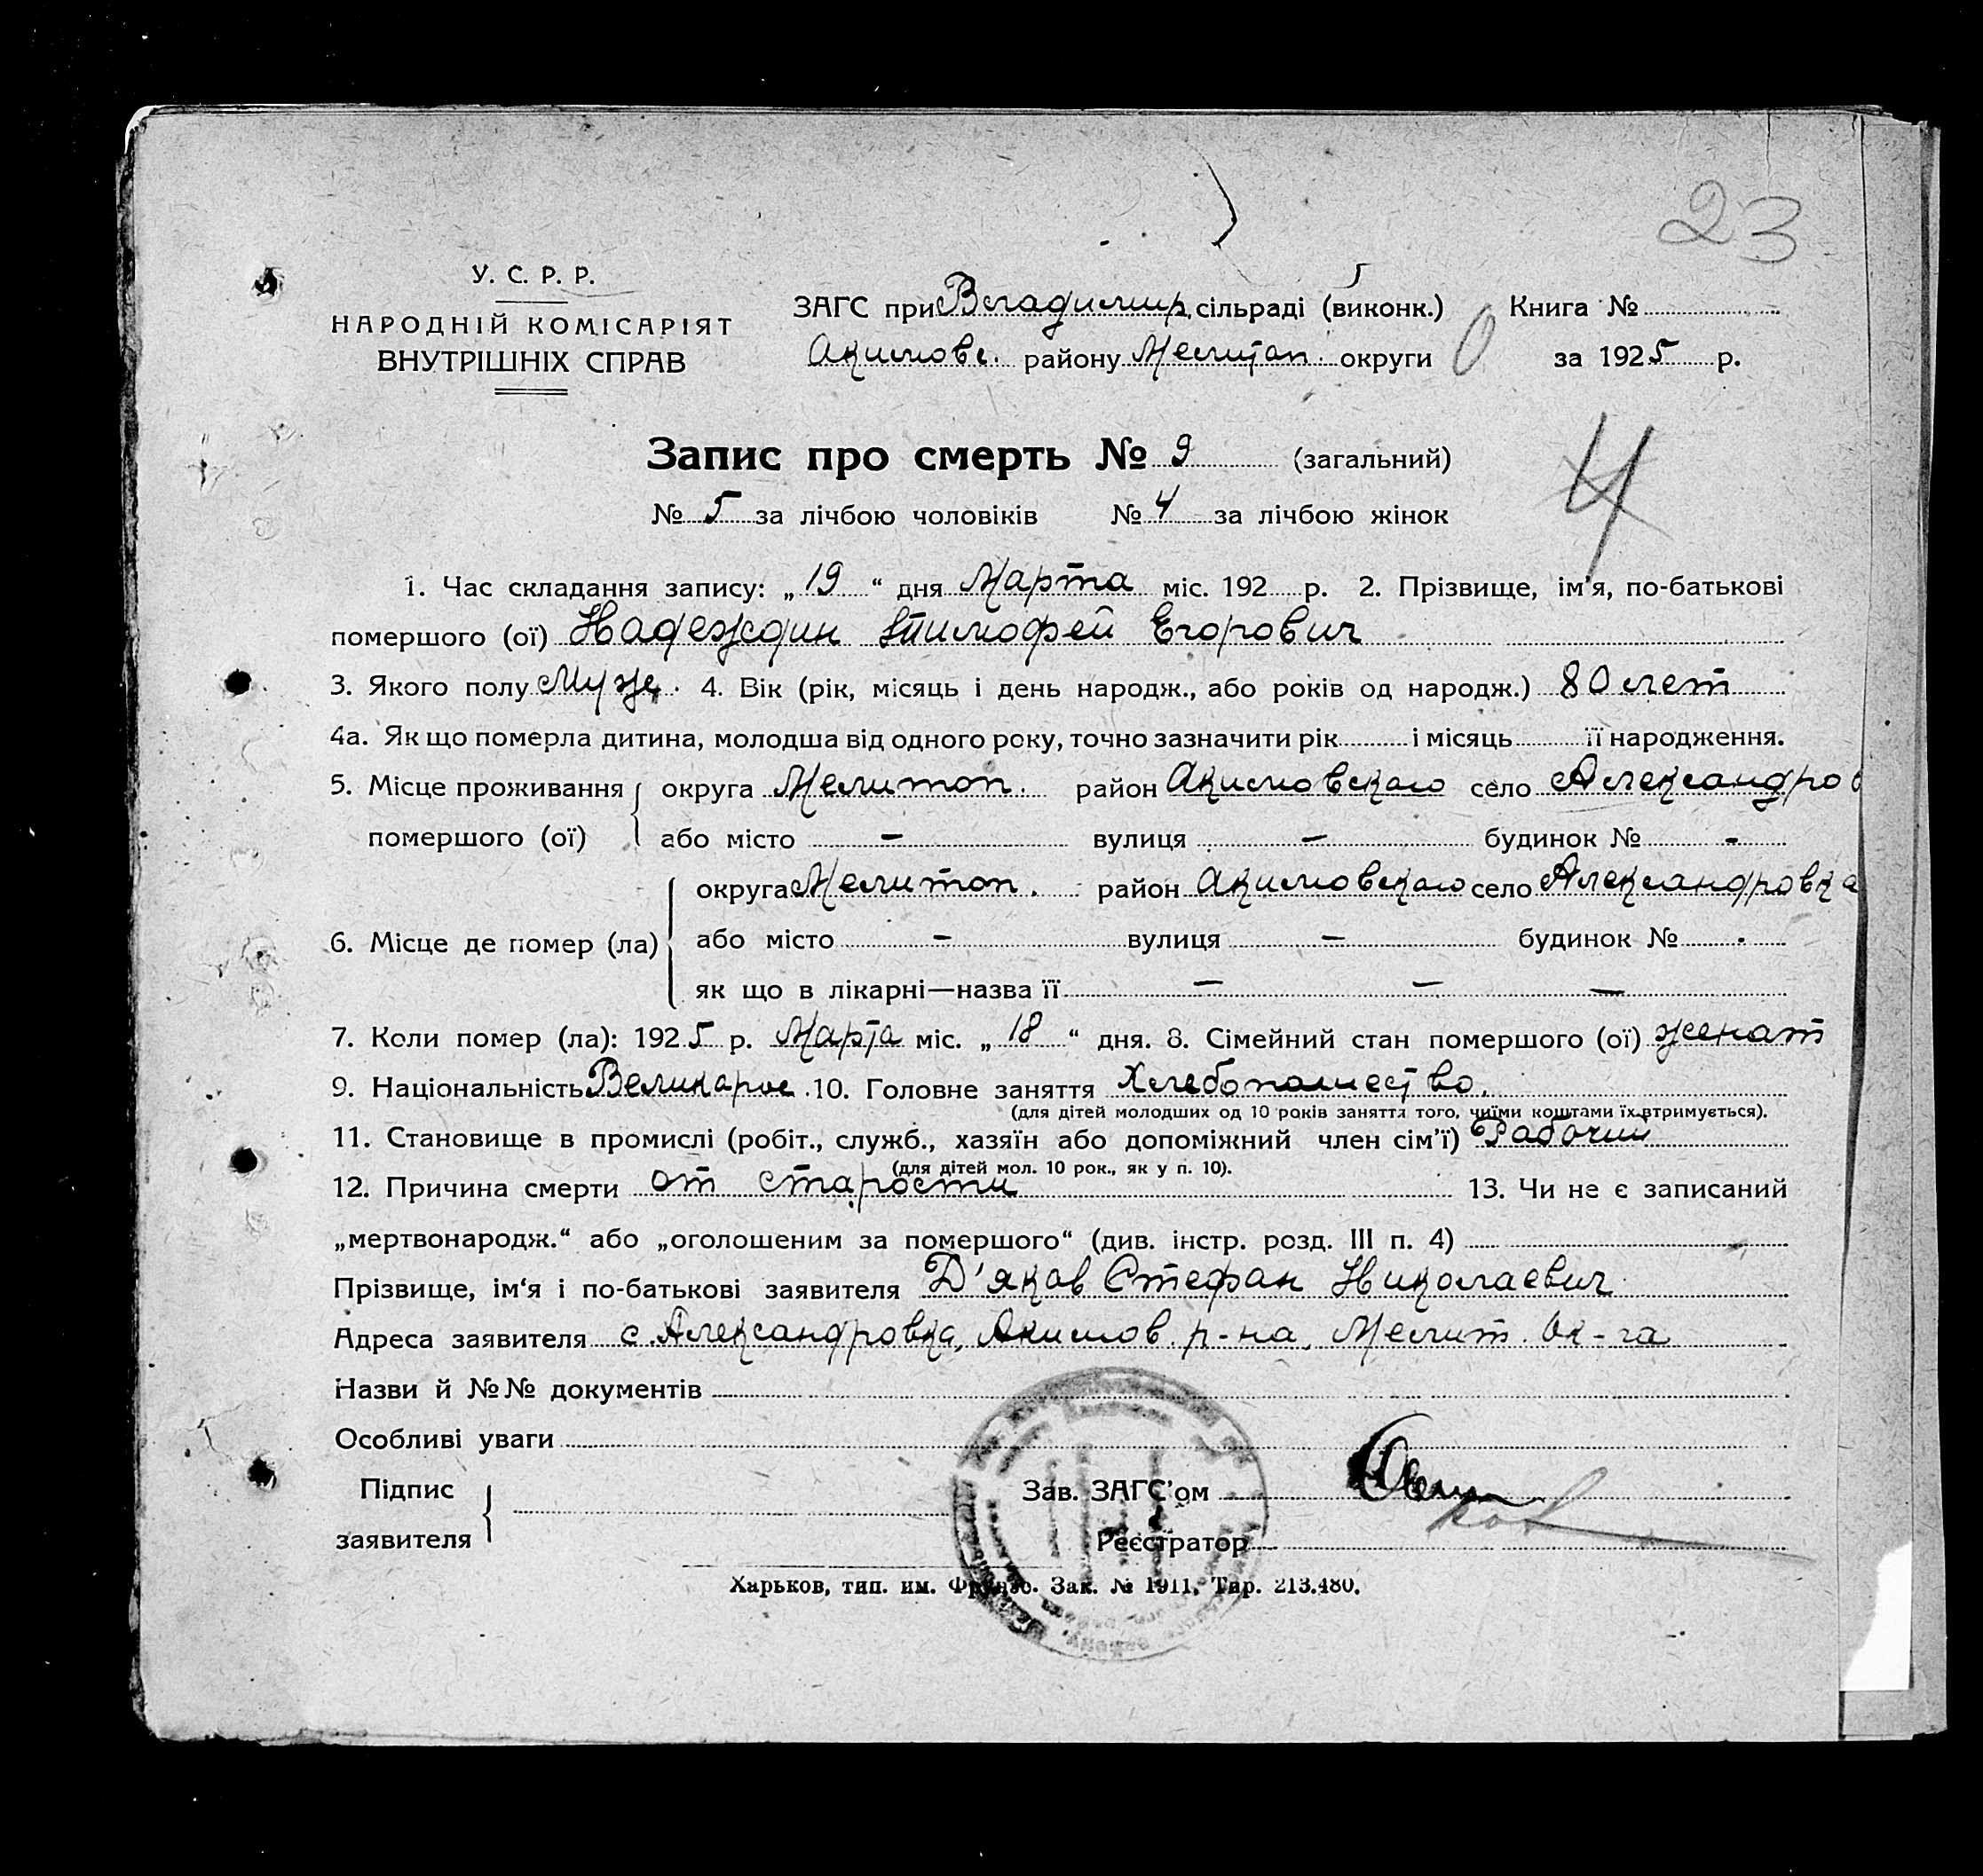 23
У. С. Р. Р.
НАРОДНІЙ КОМІСАРІЯТ
ВНУТРІШНІХ СПРАВ
5
ЗАГС при Владимир. сільраді (виконк.) Книга №
Акимовс. району Мелитоп. округи 0 за 1925 р.
Запис про смерть № 9 (загальний)
4
№ 5 за лічбою чоловіків № 4 за лічбою жінок
1. Час складання запису: „19“ дня Марта міс. 192 р. 2. Прізвище, ім'я, по-батькові
помершого (ої) Надеждин Тимофей Егорович
3. Якого полу Муж. 4. Вік (рік, місяць і день народж., або років од народж.) 80 лет
4а. Як що померла дитина, молодша від одного року, точно зазначити рік і місяць її народження.
5. Місце проживання округа Мелитоп. район Акимовского село Александров
помершого (ої) або місто — вулиця — будинок № -
округа Мелитоп. район Акимовского село Александровка
6. Місце де помер (ла) або місто — вулиця — будинок № -
як що в лікарні—назва її — — —
7. Коли помер (ла): 1925 р. Марта міс. „18“ дня. 8. Сімейний стан помершого (ої) женат
9. Національність Великорос. 10. Головне заняття Хлебопашество.
(для дітей молодших од 10 років заняття того, чиїми коштами їх втримується).
11. Становище в промислі (робіт., служб., хазяїн або допоміжний член сім'ї) Рабочий
(для дітей мол. 10 рок., як у п. 10).
12. Причина смерти от старости 13. Чи не є записаний
„мертвонародж.“ або „оголошеним за помершого“ (див. інстр. розд. III п. 4)
Прізвище, ім'я і по-батькові заявителя Д'яков Стефан Николаевич
Адреса заявителя с. Александровка, Акимов. р-на, Мелит. Ок-га
Назви й №№ документів
Особливі уваги
Підпис
заявителя
Зав. ЗАГС'ом
Реєстратор
Харьков, тип. им. Фрунзе. Зак. № 1911. Тир. 213.480.